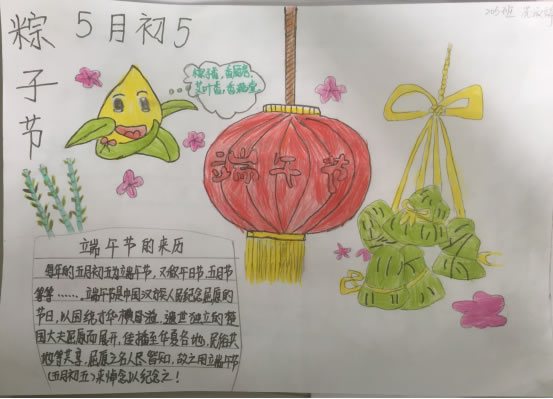 粽子节
5月初5
粽子香,香厨房
艾叶香,香满堂
端午节
端午节的来历
每年的五月初五为端午节,又叫午日节,五月节
等等……端午节是中国汉族人民纪念屈原的
节日,以围绕才华横溢、遗世独立的楚
国大夫屈原而展开,传播至华夏各地,民俗共
地皆共享,屈原之名人尽皆知,故之用端午节
(五月初五)来悼念以纪念之!